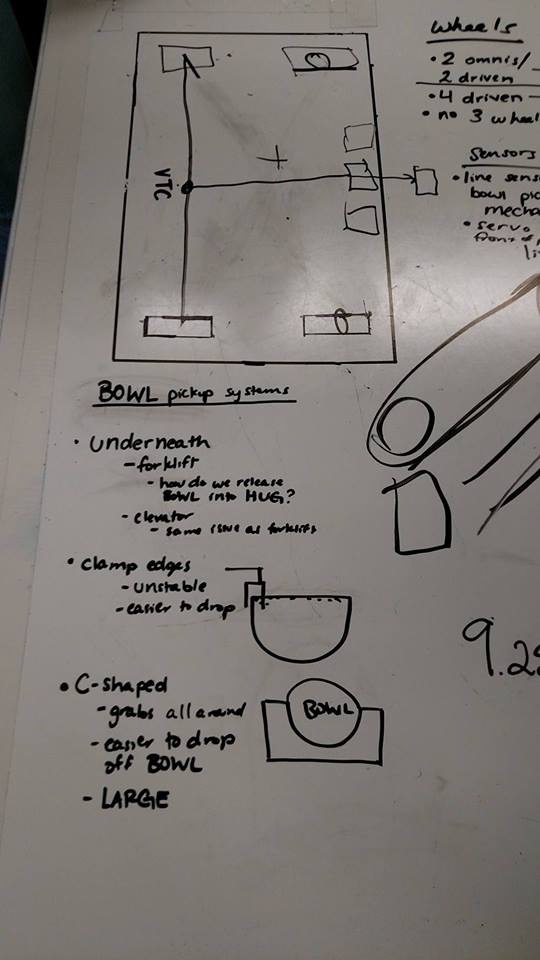 VTC
Wheels
• 2 omnis/
2 driven
• 4 driven -
• no 3 wheel
Sensors
• line sens
bowl pic
mecha
• servo
front of
li
BOWL pickup systems
• Underneath
- forklift
- how do we release
BOWL into HUG?
- elevator
- same issue as forklift
• Clamp edges
- unstable
- easier to drop
• C-shaped
- grabs all around
- easier to drop
off BOWL
- LARGE
BOWL
9.2